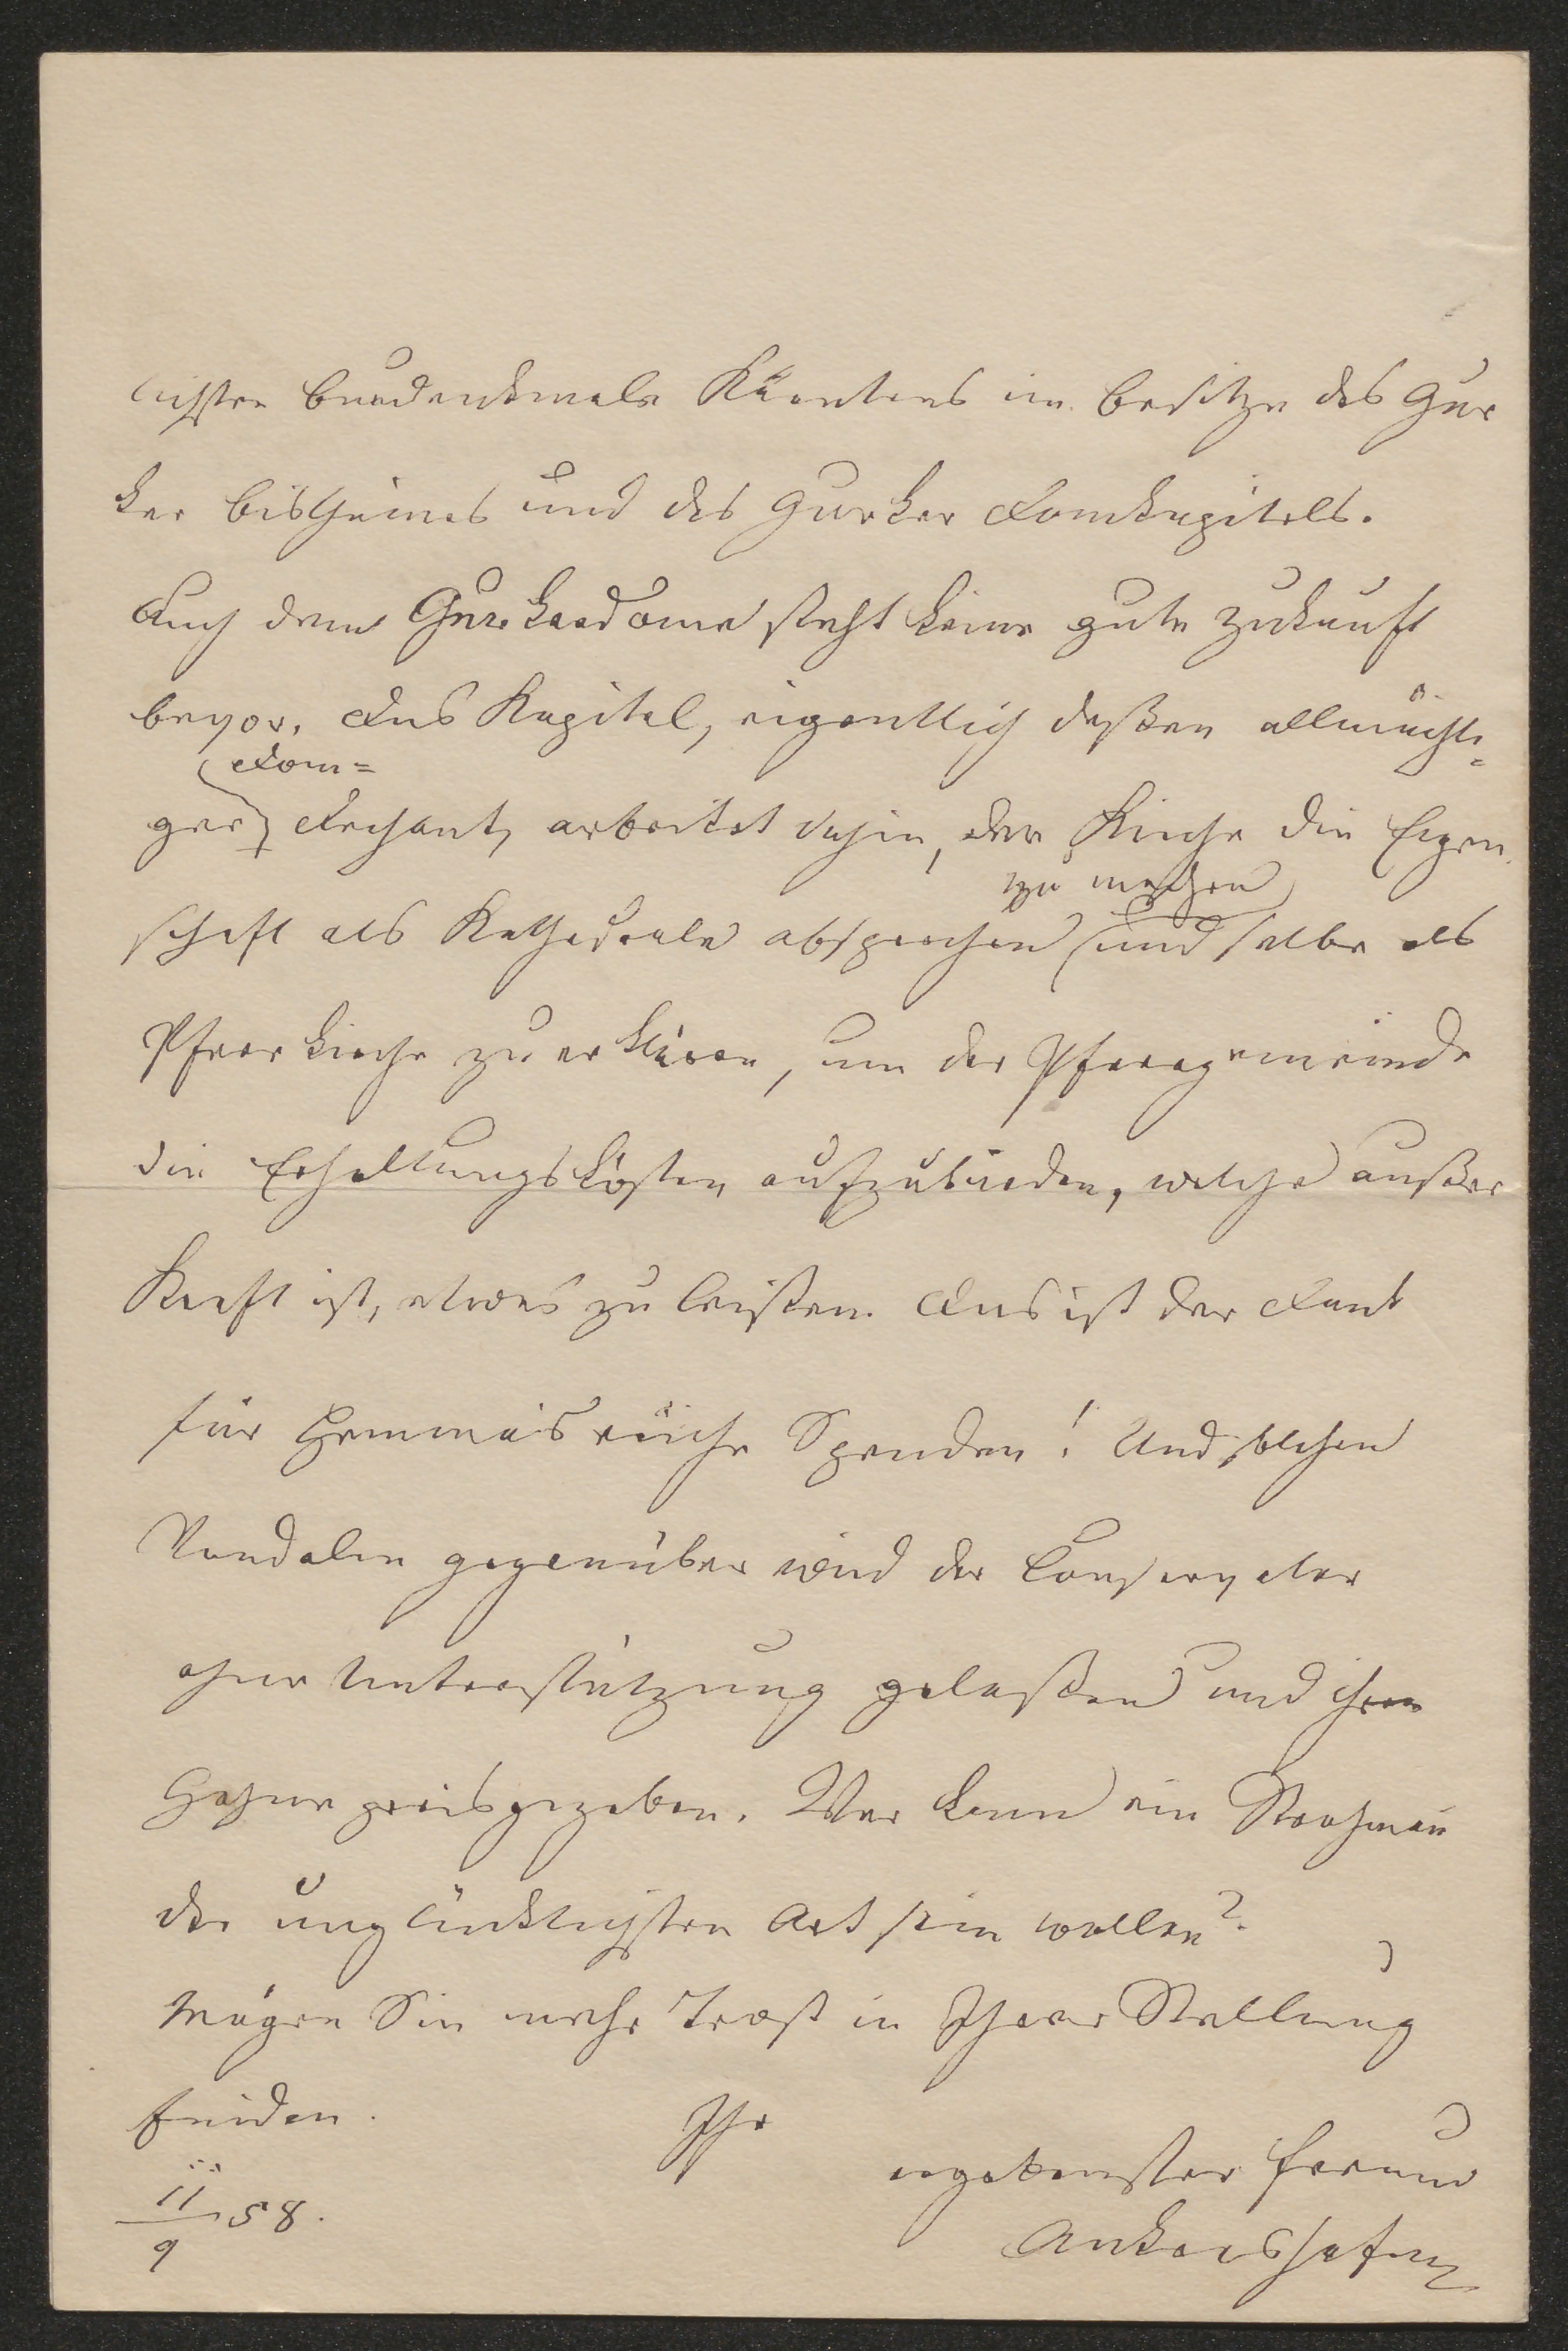 lichsten Baudenkmale Kärntens im Besitze des Gur
ker Bisthumes und des Gurker Domkapitels.
Auch dem Gurkerdome steht keine gute Zukunft
bevor. Das Kapitel, eigentlich deßen allmächti=
Dom=
ger Dechant, arbeitet dahin, der Kirche die Eigen
zu machen
schaft als Kathedrale absprechen und selbe als
Pfarrkirche zu erklären, um der Pfarrgemeinde
die Erhaltungskosten aufzubürden, welche außer
Kraft ist, etwas zu leisten. Das ist der Dank
für Hemma's reiche Spenden! Und solchen
Vandalen gegenüber wird der Conservator
ohne Unterstützung gelaßen und ihrem
Hohne preisgegeben. Wer kann ein Strohman̄
der unglücklichsten Art sein wollen?
Mögen Sie mehr Trost in Ihrer Stellung
finden.
Ihr
ergebenster Freund
Ankershofen
11/9 58.